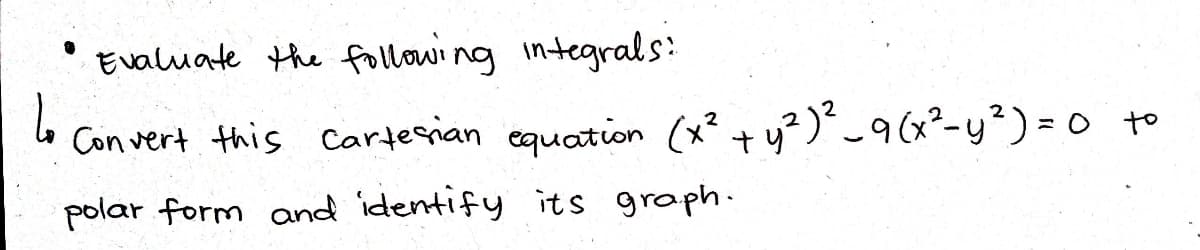 • Evaluate the following integrals:
↳ Convert this cartesian equation (x² + y²)² - 9(x² - y²) = 0 to
polar form and identify its graph.